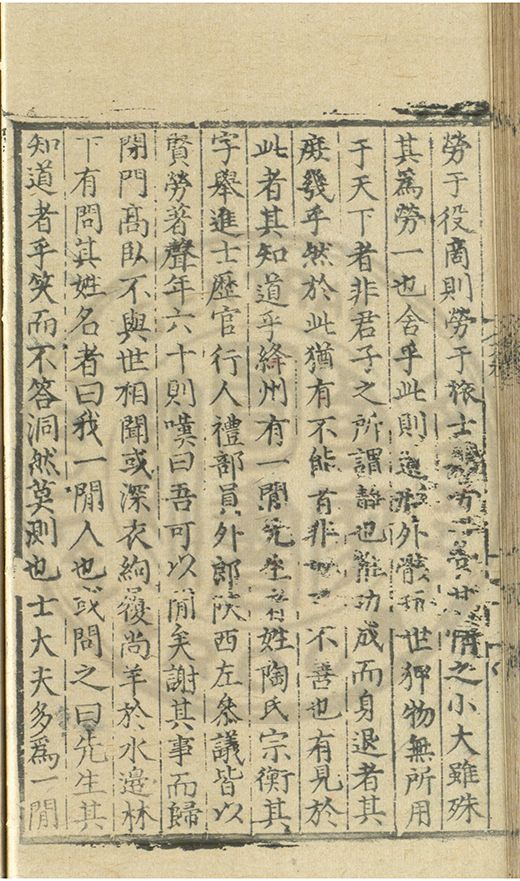 勞于役商則勞于旅士之小大雖殊
其爲勞一也舍乎此則外世狎物無所用
于天下者非君子之所謂靜也惟功成而身退者其
庶幾乎然於此猶有不能者非不善也有見於
此者其知道乎絳州有一閒先生者姓陶氏宗衡其
字舉進士歷官行人禮部員外郎陝西左叅議皆以
賢勞著聲年六十則嘆曰吾可以閒矣謝其事而歸
閉門髙臥不與世相聞或深衣絇履尚羊於水邊林
下有問其姓名者曰我一閒人也或問之曰先生其
知道者乎笑而不答洞然莫測也士大夫多爲一閒